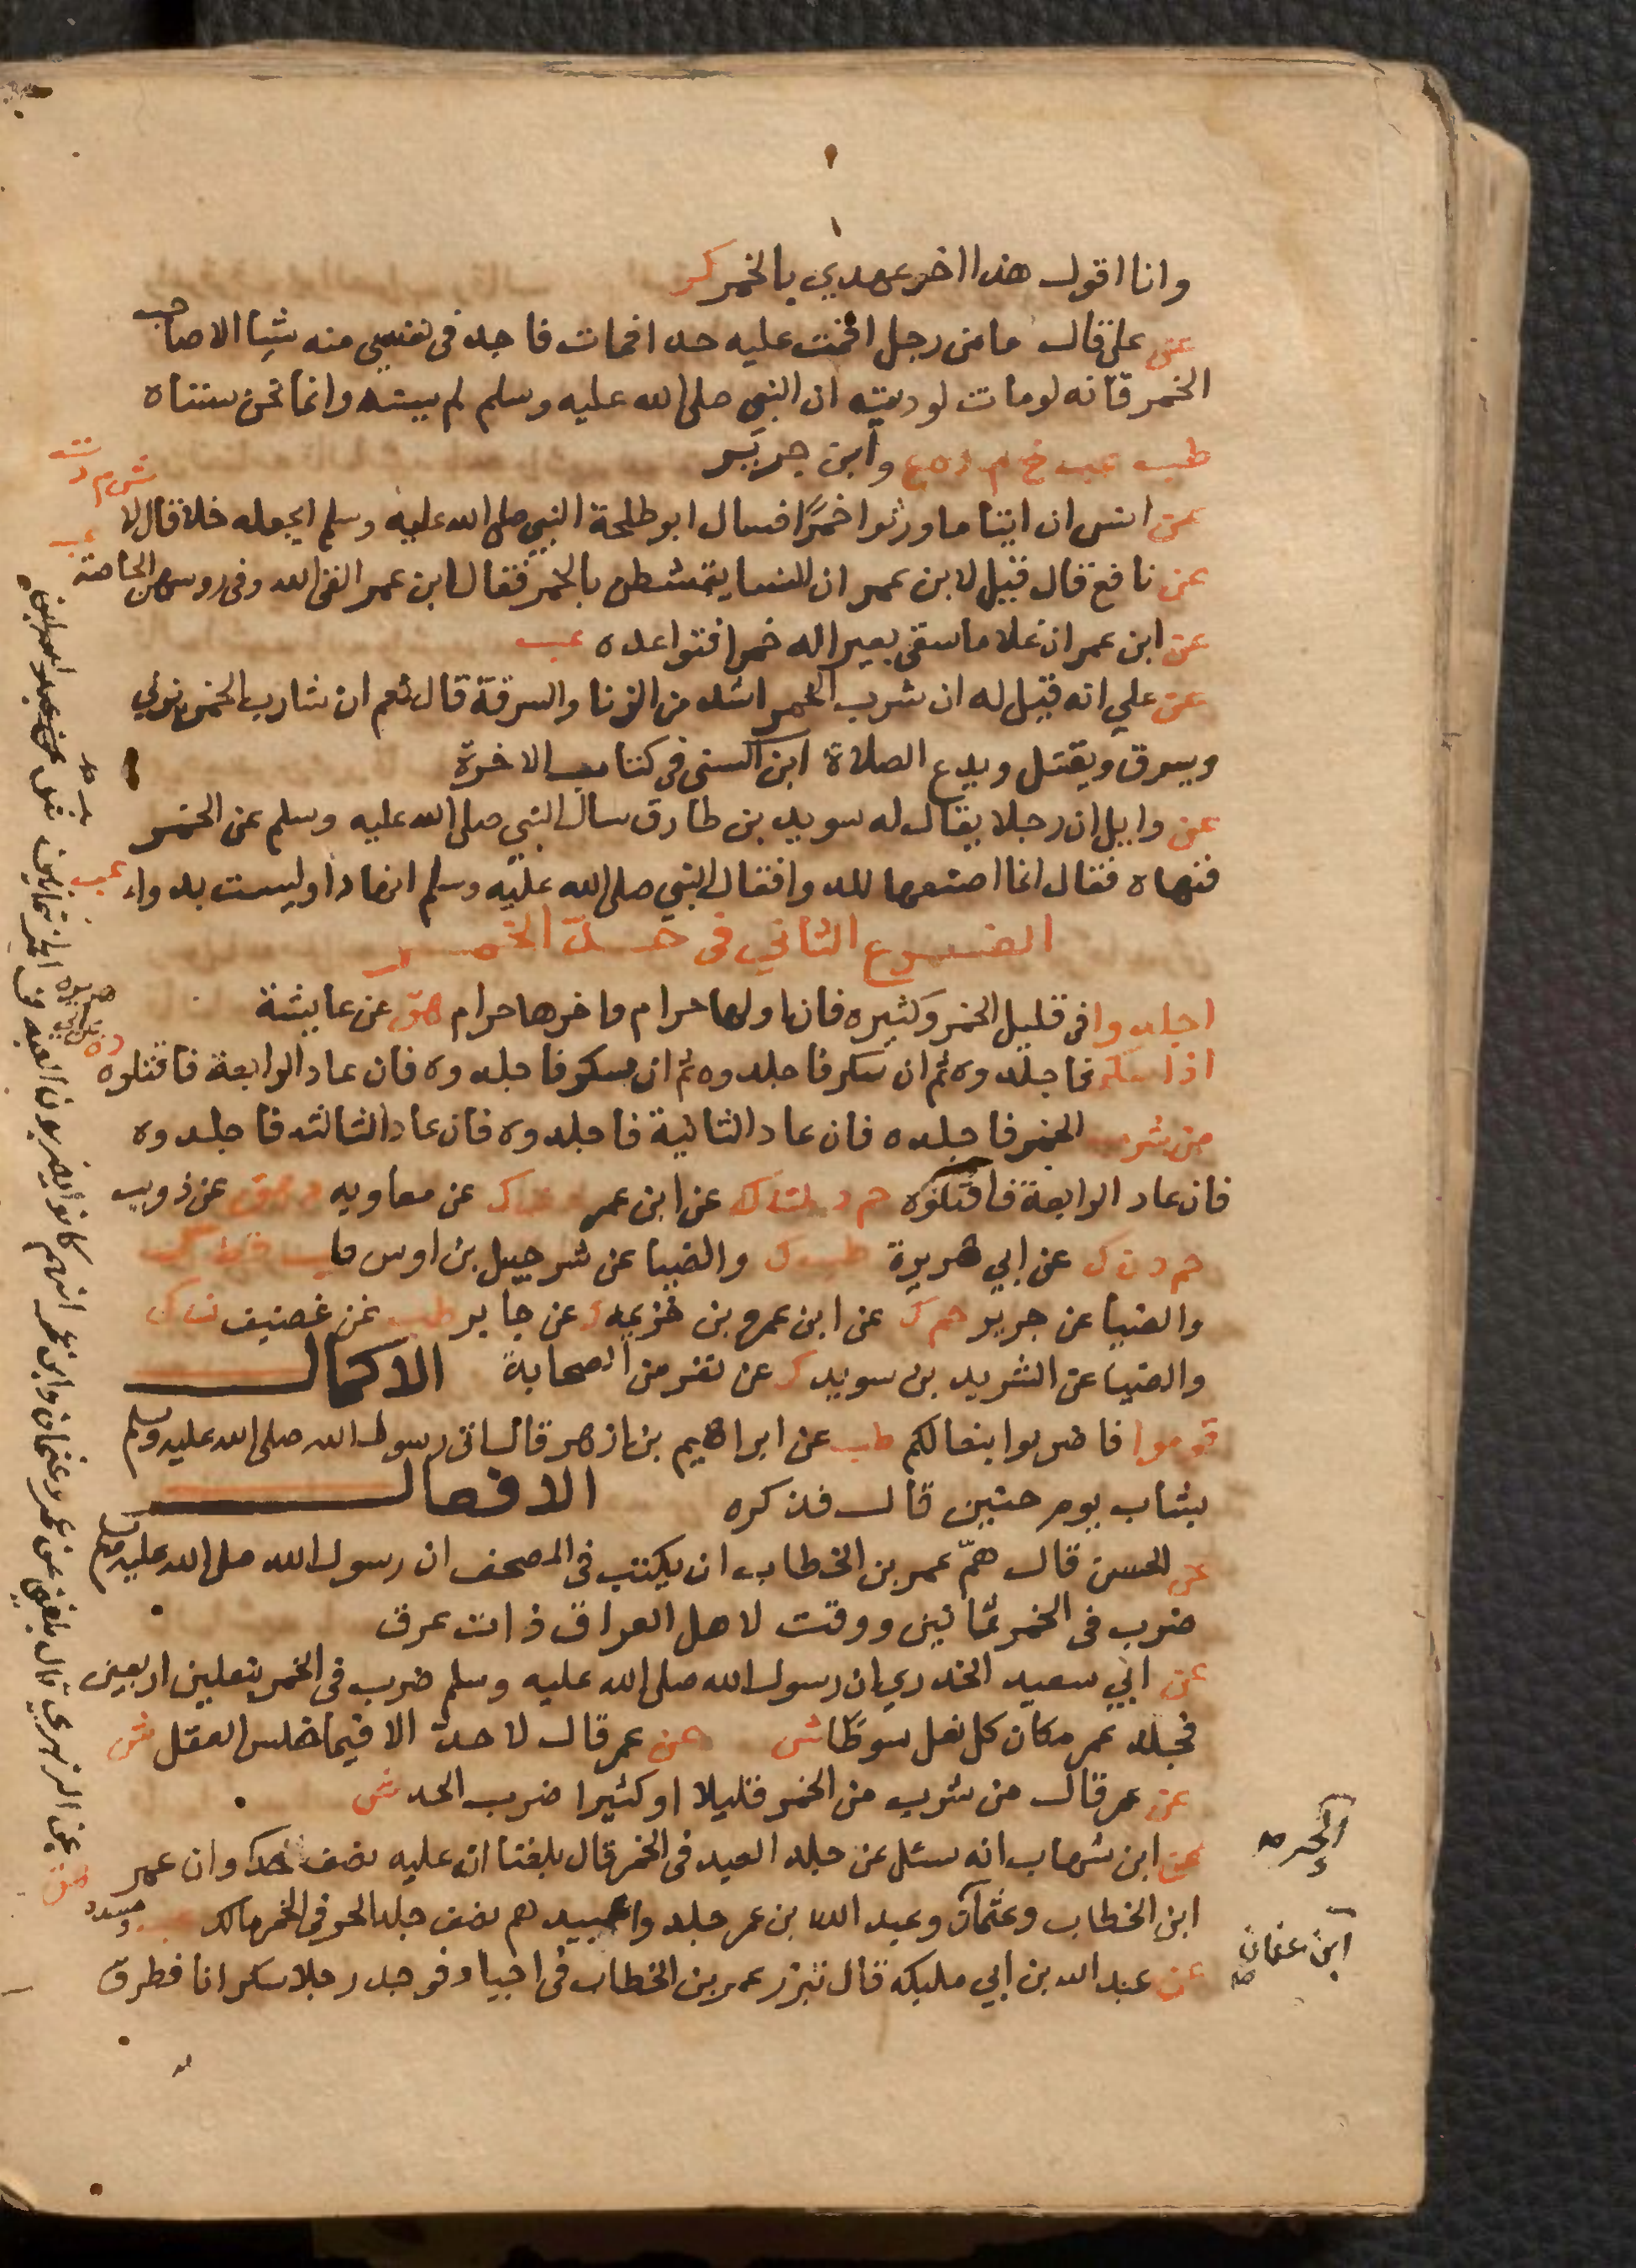 وانا اقول هذا اخر عهدي بالخمر كر
عن علي قال ما من رجل اقمت عليه حدا فمات فاجد في نفسي منه شيا الا صاحب
الخمر فانه لو مات لوديته ان النبي صلى الله عليه وسلم لم يسنه وانما نحن سنناه
طب عب خ م د ه ع وابن جرير
عن انس ان ايتاما ورثوا خمرًا فسال ابو طلحة النبي صلى الله عليه وسلم ايجعله خلا قال لا ش م د ت
عن نافع قال قيل لابن عمر ان النسا يمتشطن بالخمر فقال ابن عمر القى الله في روسهن الحاصة عب
عن ابن عمر ان غلاما سقى بعيرا له خمرا فتواعده عب
عن علي انه قيل له ان شرب الخمر اشد من الزنا والسرقة قال نعم ان شارب الخمر يزني
ويسرق ويقتل ويدع الصلاة ابن السني في كتاب الاخرة
عن وايل ان رجلا يقال له سويد بن طارق سال النبي صلى الله عليه وسلم عن الخمر
فنهاه فقال انما اصنعها للدوا فقال النبي صلى الله عليه وسلم انها دا وليست بدواء عب
الفرع الثاني في حد الخمر
اجلدوا في قليل الخمر وكثيره فان اولها حرام واخرها حرام هق عن عايشة
اذا سكر فاجلدوه ثم ان سكر فاجلدوه ثم ان سكر فاجلدوه فان عاد الرابعة فاقتلوه د ه
من شرب الخمر فاجلدوه فان عاد الثانية فاجلدوه فان عاد الثالثة فاجلدوه
فان عاد الرابعة فاقتلوه حم د ك عن ابن عمر ك عن معاويه د هق عن ذويب
حم د ن ك عن ابي هريرة طب ك والضيا عن شرحبيل بن اوس طب قط ك
والضيا عن جرير حم ك عن ابن عمرو بن خزيمه ك عن جابر طب عن غضيف ن ك
والضيا عن الشريد بن سويد ك عن نفر من الصحابة الاكمال
قوموا فاضربوا بنعالكم طب عن ابراهيم بن ازهر قال اتى رسول الله صلى الله عليه وسلم
بشاب يوم حنين قال فذكره الافعال
عن الحسن قال همّ عمر بن الخطاب ان يكتب في المصحف ان رسول الله صلى الله عليه وسلم
ضرب في الخمر ثمانين ووقت لاهل العراق ذات عرق
عن ابي سعيد الخدري ان رسول الله صلى الله عليه وسلم ضرب في الخمر بنعلين اربعين
فجعل عمر مكان كل نعل سوطًا ش عن عمر قال لا حد الا فيما خلس العقل ش
عن عمر قال من شرب من الخمر قليلا او كثيرا ضرب الحد ش
عن ابن شهاب انه سئل عن جلد العبد في الخمر قال بلغنا ان عليه نصف حد وان عمر
ابن الخطاب وعثمان وعبد الله بن عمر جلدوا عبيدهم نصف جلد الحر في الخمر مالك عب ومسدد
عن عبد الله بن ابي مليكه قال تبرز عمر بن الخطاب في اجياد فوجد رجلا سكرانا فطرق
الحر صح
ابن عفان صح
عن الزهري قال بلغني عن عمر وعثمان وابن عمر انهم كانوا يضربون العبد في الخمر ثمانين